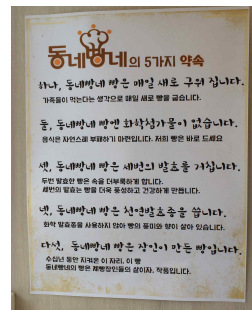 동네빵네의 5가지 약속
하나, 동네빵네 빵은 매일 새로 구워 집니다.
가족들이 먹는다는 생각으로 매일 새 빵을 굽습니다.
둘, 동네빵네 빵엔 화학첨가물이 없습니다.
음식은 자연스레 부패하기 마련입니다. 저희 빵은 바로 드세요
셋, 동네빵네 빵은 세번의 발효를 거칩니다.
두번 발효한 빵은 속을 더부룩하게 합니다.
세번의 발효는 빵을 더욱 풍성하고 건강하게 만듭니다.
넷, 동네빵네 빵은 천연발효종을 씁니다.
화학 발효종을 사용하지 않아 빵의 풍미와 향이 살아 있습니다.
다섯, 동네빵네 빵은 장인이 만든 빵입니다.
수십년 동안 지켜온 이 자리, 이 빵
동네빵네의 빵은 제빵장인들의 삶이자, 작품입니다.